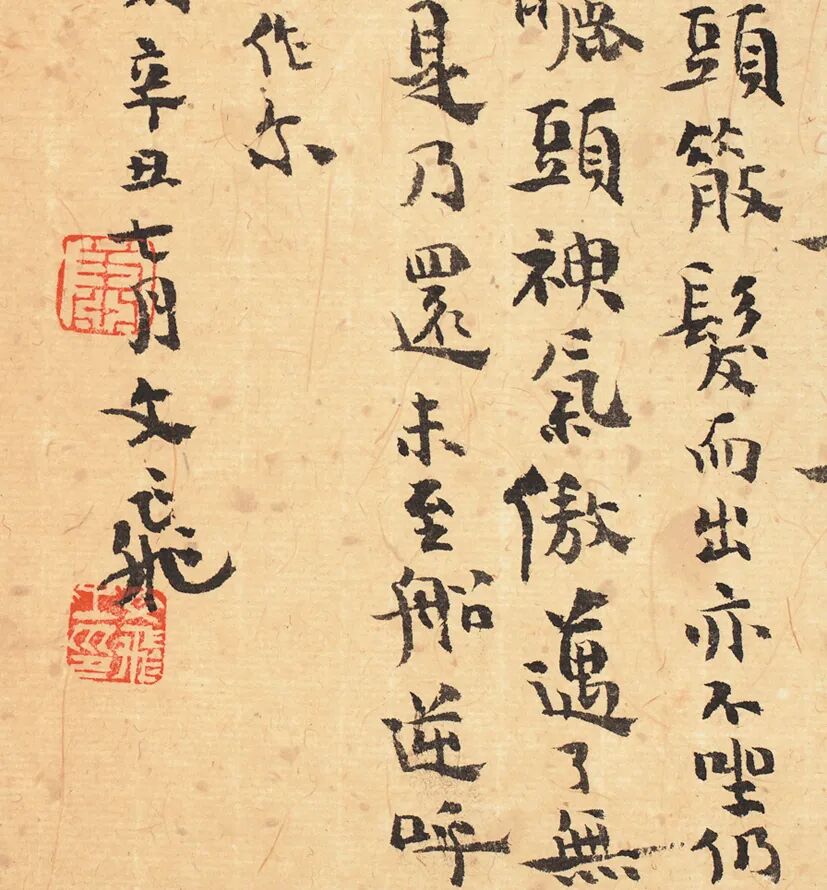 頭散髮而出亦不坐仍
曬頭神氣傲邁了無
是乃還未至船逆呼
作尔
辛丑七月文飛